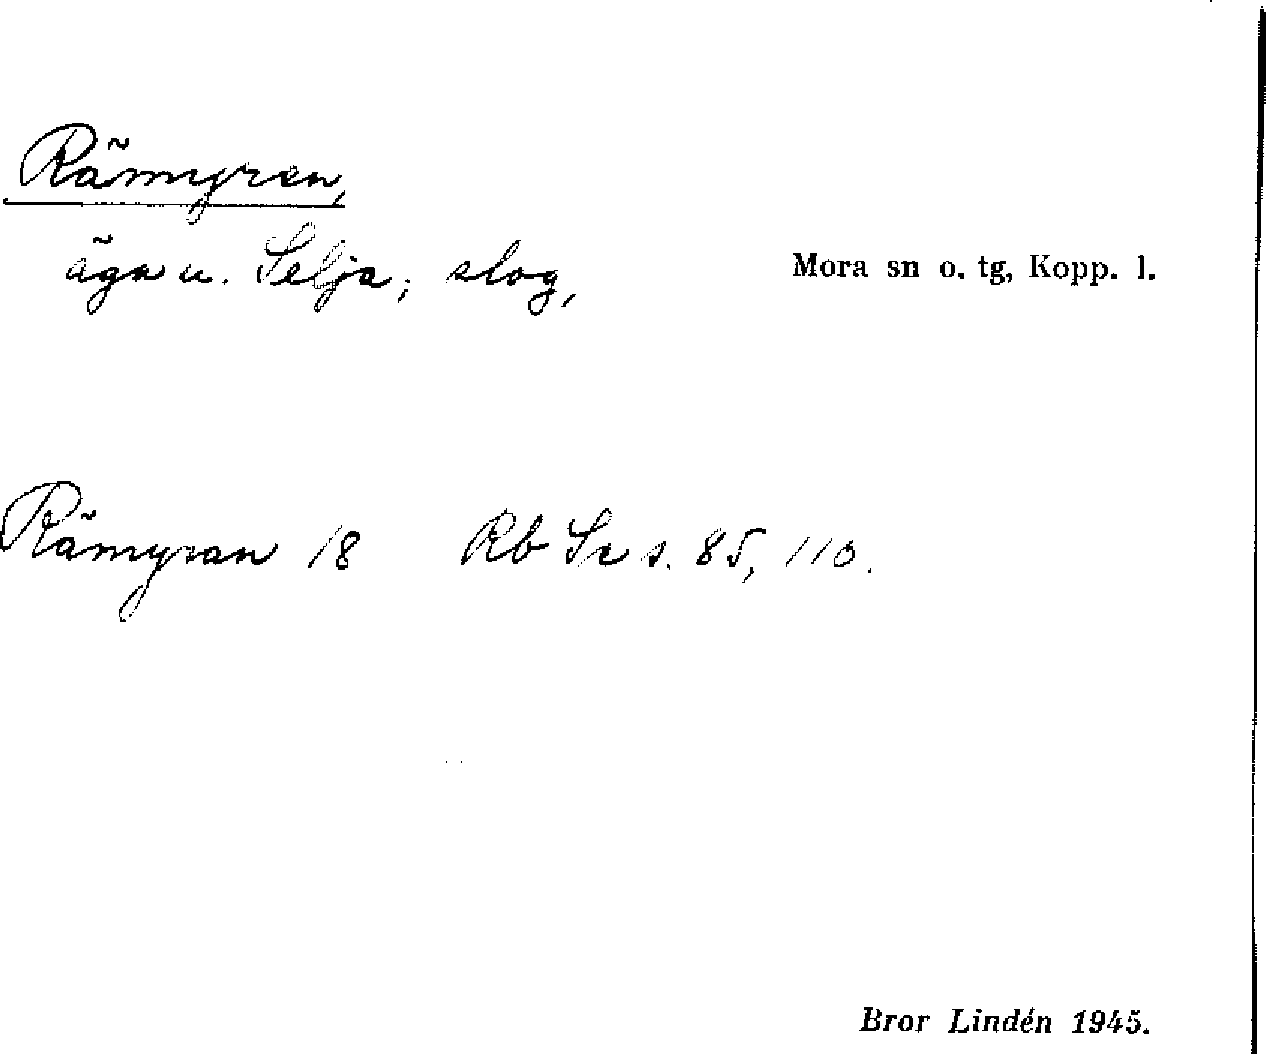 Rämyren,
äga u. Selja; slog,
Mora sn o. tg, Kopp. l.
Rämyran 18 Rb Se s. 85, 110.
Bror Lindén 1945.